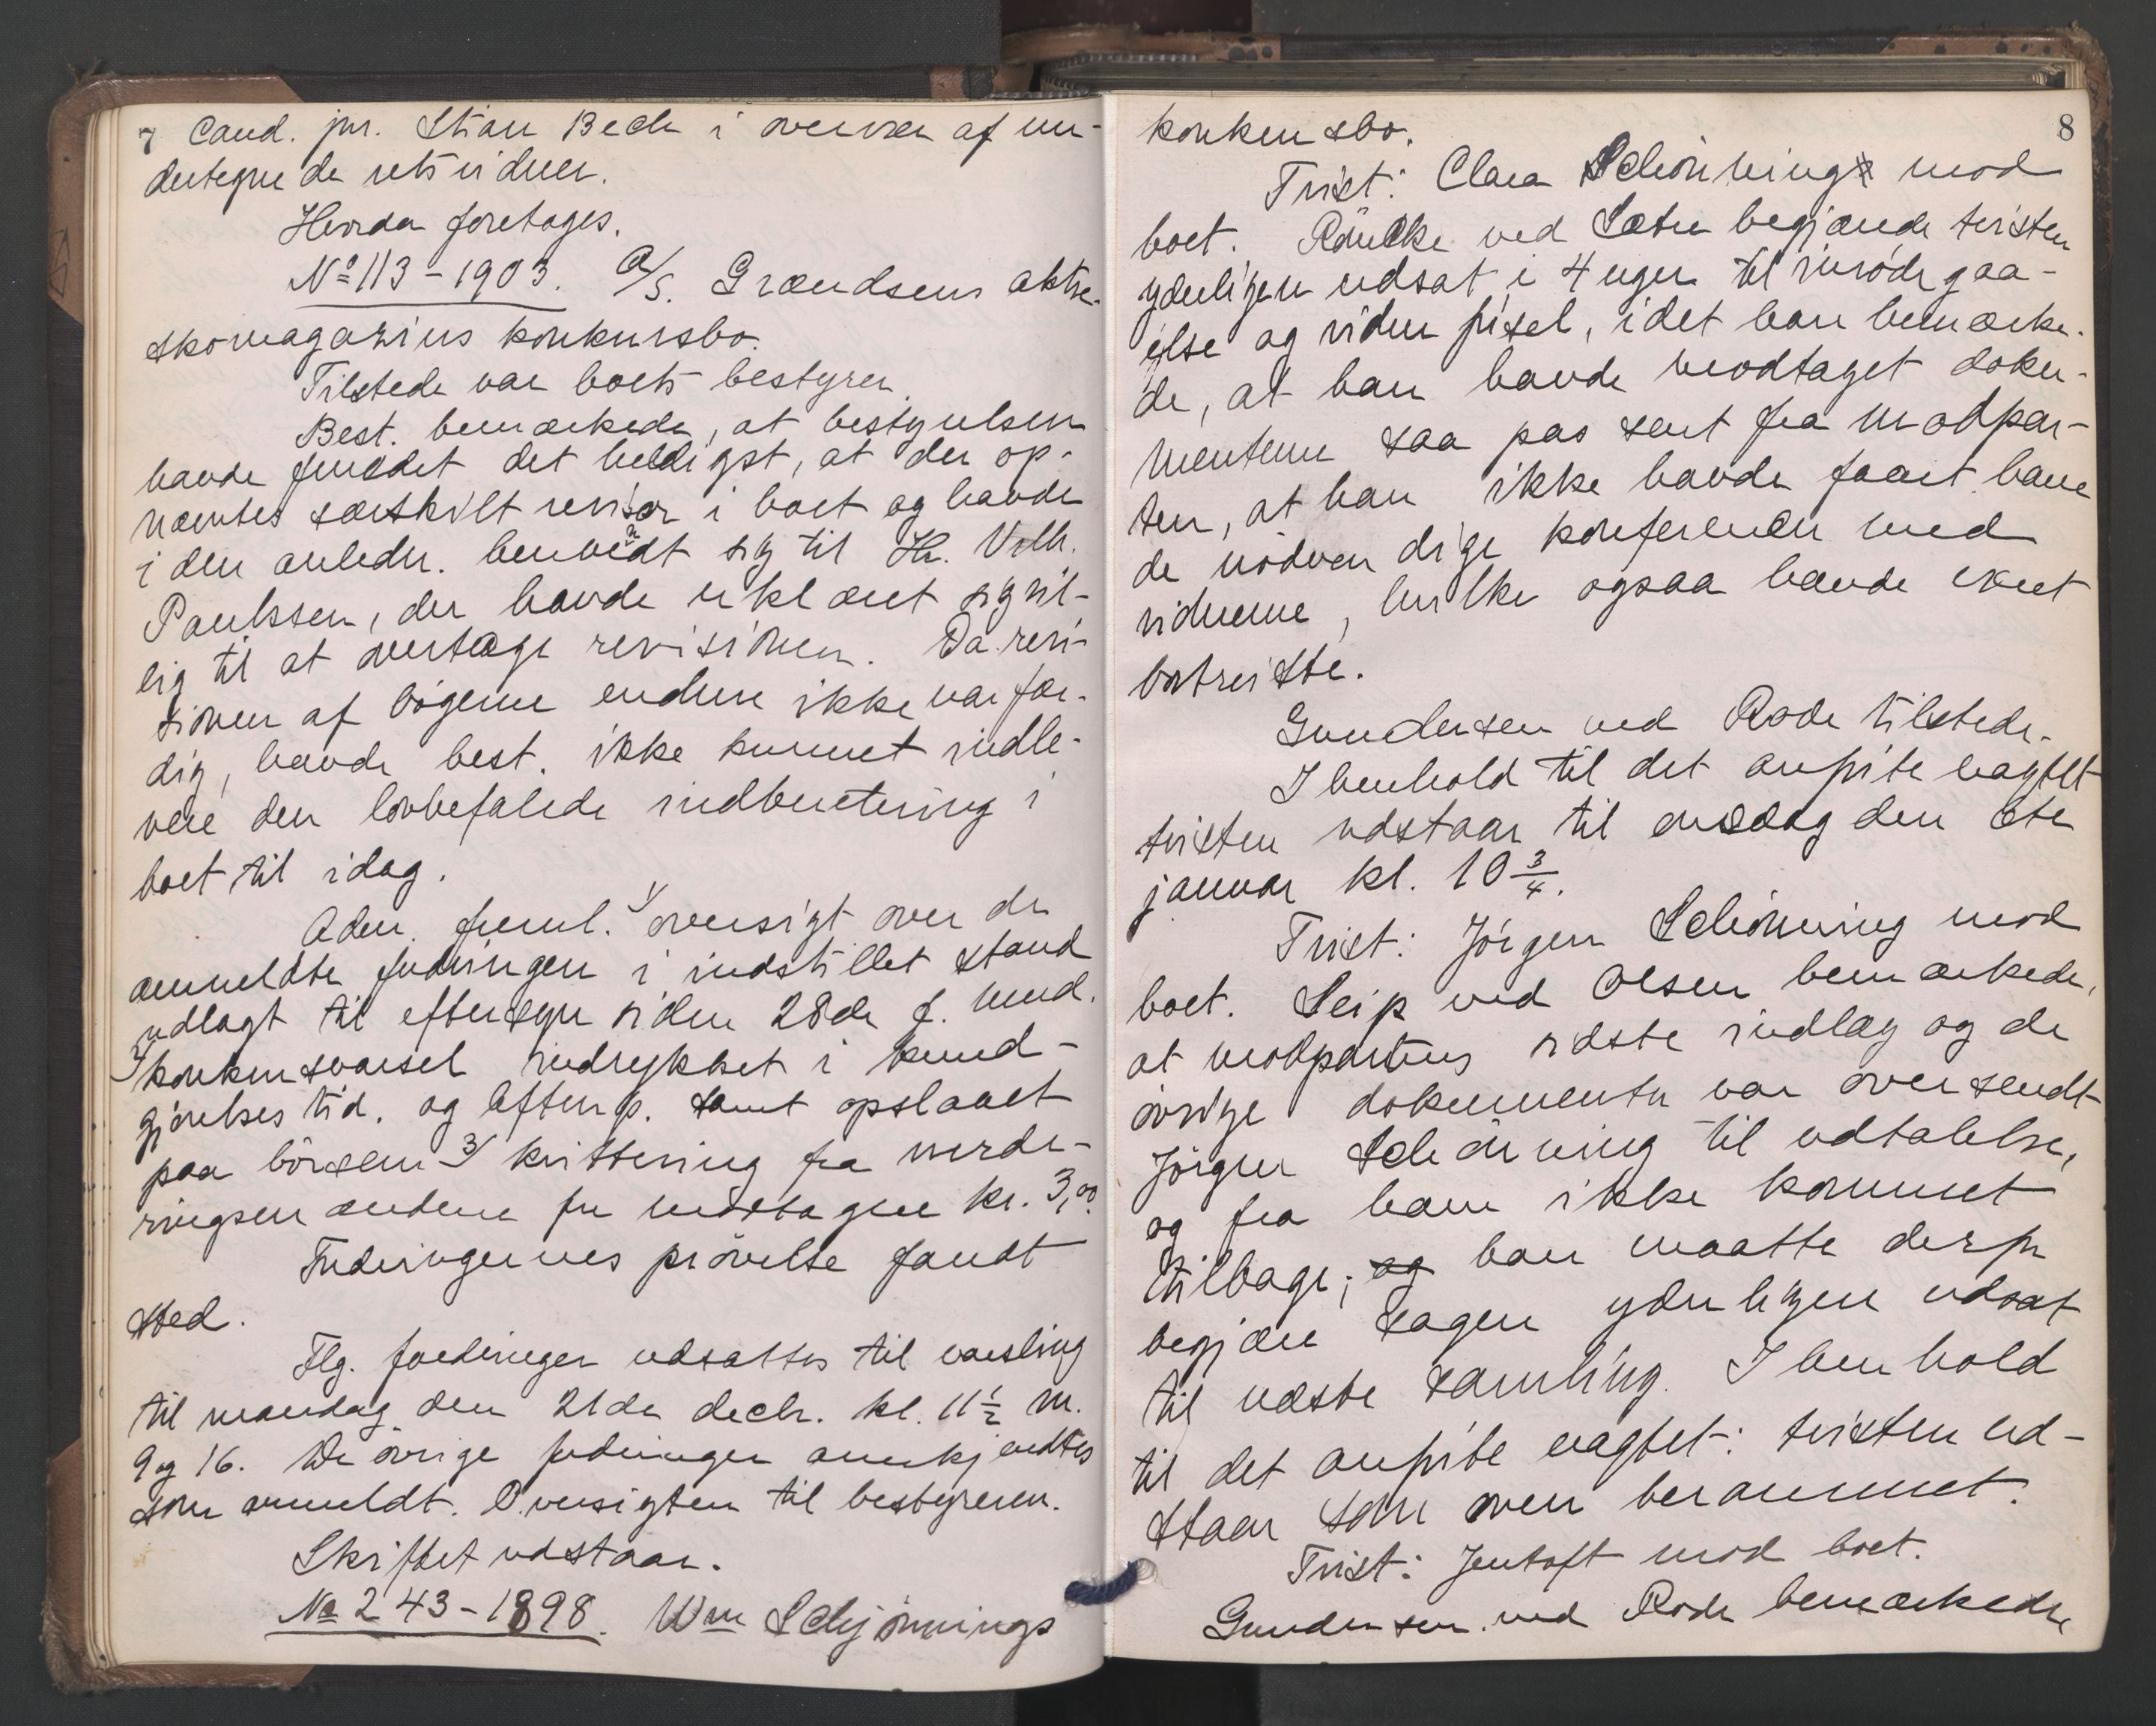 7 Cand. jur. Stian Bech i overvær af un-
dertegnede retsvidner.
Hvorda foretoges.
No 113-1903. A/S. Grændsens aktie-
skomagazins konkursbo.
Tilstede var boets bestyrer.
Best. bemærkede, at bestyrelsen
havde fundet det heldigst, at der op-
nævntes særskilt revisor i boet og havde
i den anledn. henvendt sig til Hr. Vilh.
Paulssen, der havde erklæret sig vil-
lig til at overtage revisionen. Da revi-
sionen af bøgerne endnu ikke var fær-
dig, havde best. ikke kunnet indle-
vere den lovbefalede indberetning i
boet til idag.
Adm. freml. 1/ oversigt over de
anmeldte fordringer i indstillet stand
udlagt til eftersyn siden 28de f. mnd.
2/ konkursvarsel indrykket i kund-
gjørelses tid. og Aftenp. samt opslaaet
paa børsen 3/ kvittering fra vurde-
ringsmændene for modtagne kr. 3,00.
Fordringernes prøvelse fandt
sted.
Flg. fordringer udsattes til varsling
til mandag den 21de decbr. kl. 11 1/2 m.
9 og 16. De øvrige fordringer anerkjendtes
som anmeldt. Oversigten til bestyreren.
Skiftet udstaar.
No 243-1898. Wm Schjønnings
8
konkursbo.
Tvist: Clara Schönning mod
boet. Räncke ved Sæter begjærede tvisten
yderligere udsat i 4 uger til imødegaa-
else og vidneførsel, idet han bemærke-
de, at han havde modtaget doku-
menterne saa pas sent fra modpar-
ten, at han ikke havde faaet have
de nödvendige konferencer med
vidnerne, hvilke ogsaa havde været
bortreiste.
Gundersen ved Rode tilstede.
I henhold til det anførte vagtet
tvisten udstaar til onsdag den 6te
januar kl. 10 3/4.
Tvist: Jörgen Schönning mod
boet. Seip ved Olsen bemærkede,
at modpartens sidste indlæg og de
övrige dokumenter var oversendt
Jörgen Schönning til udtalelse,
og fra ham ikke kommet
tilbage; og han maatte derfor
begjære sagen yderligere udsat
til næste samling. I henhold
til det anførte vagtet: tvisten ud-
staar som oven berammet.
Tvist: Jentoft mod boet.
Gundersen ved Rode bemærkede